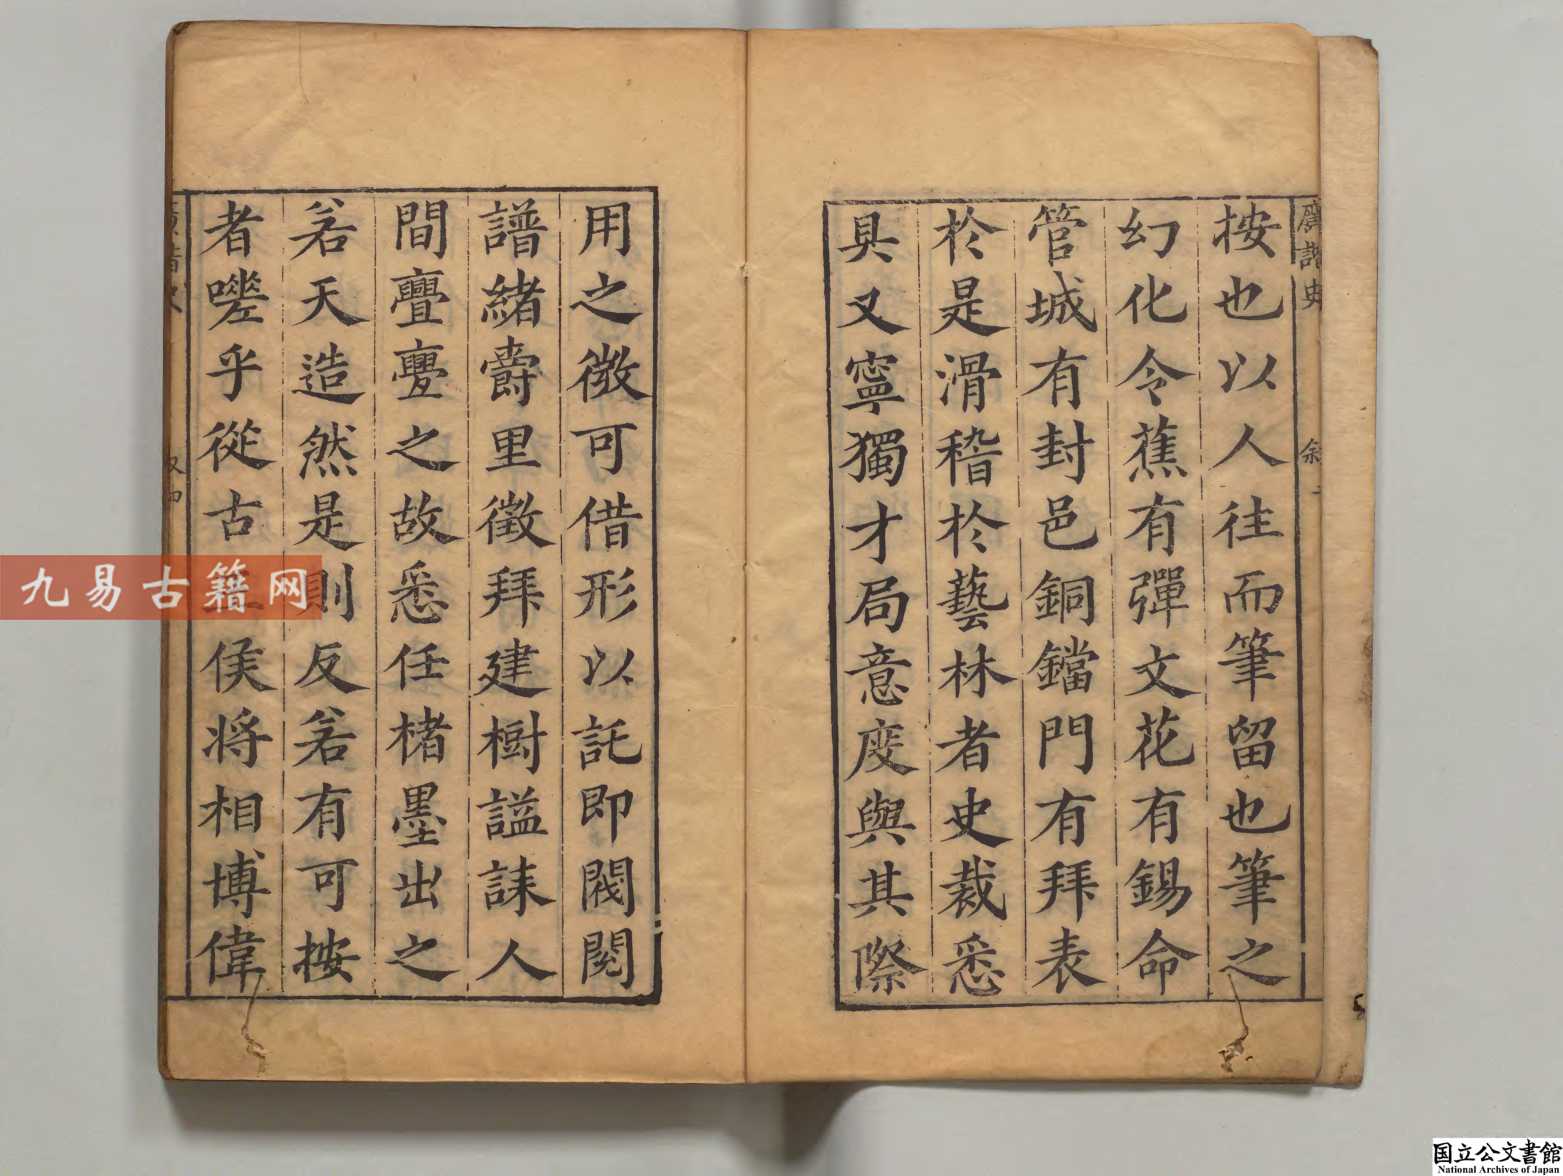 廣諧史
按也以人往而筆留也筆之
幻化令蕉有彈文花有錫命
管城有封邑銅鐺門有拜表
於是滑稽於藝林者史裁悉
具又寧獨才局意度與其際
用之徴可借形以託即閥閱
譜緒爵里徵拜建樹謚誄人
間亹亹之故悉任楮墨出之
若天造然是則反若有可按
者嗟乎從古侯將相博偉
九易古籍网
国立公文書館
National Archives of Japan